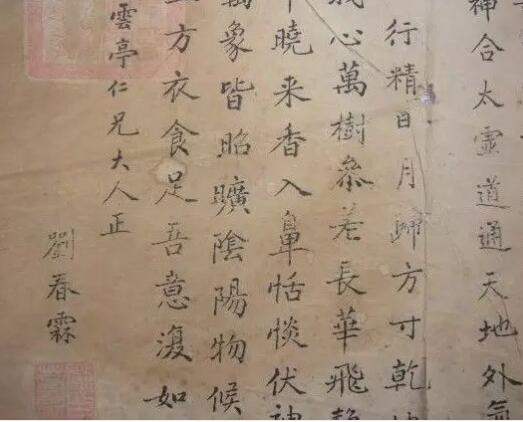 神合太虛道通天地外氣
行精日月歸方寸乾坤
心萬樹叅差長華飛
曉来香入鼻恬惔伏神
萬象皆昭曠陰陽物候
方衣食足吾意復如
雲亭仁兄大人正
劉春霖